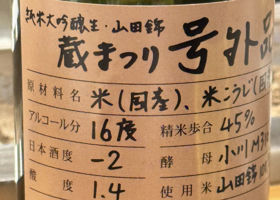 純米大吟醸生・山田錦
蔵まつり 号外品
原材料名 米(国産)、米こうじ(国
アルコール分 16度 精米歩合 45%
日本酒度 -2 酵母 小川M310
酸度 1.4 使用米 山田錦100